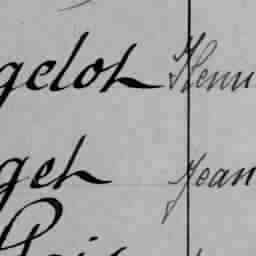 gelot Henri
get Jean